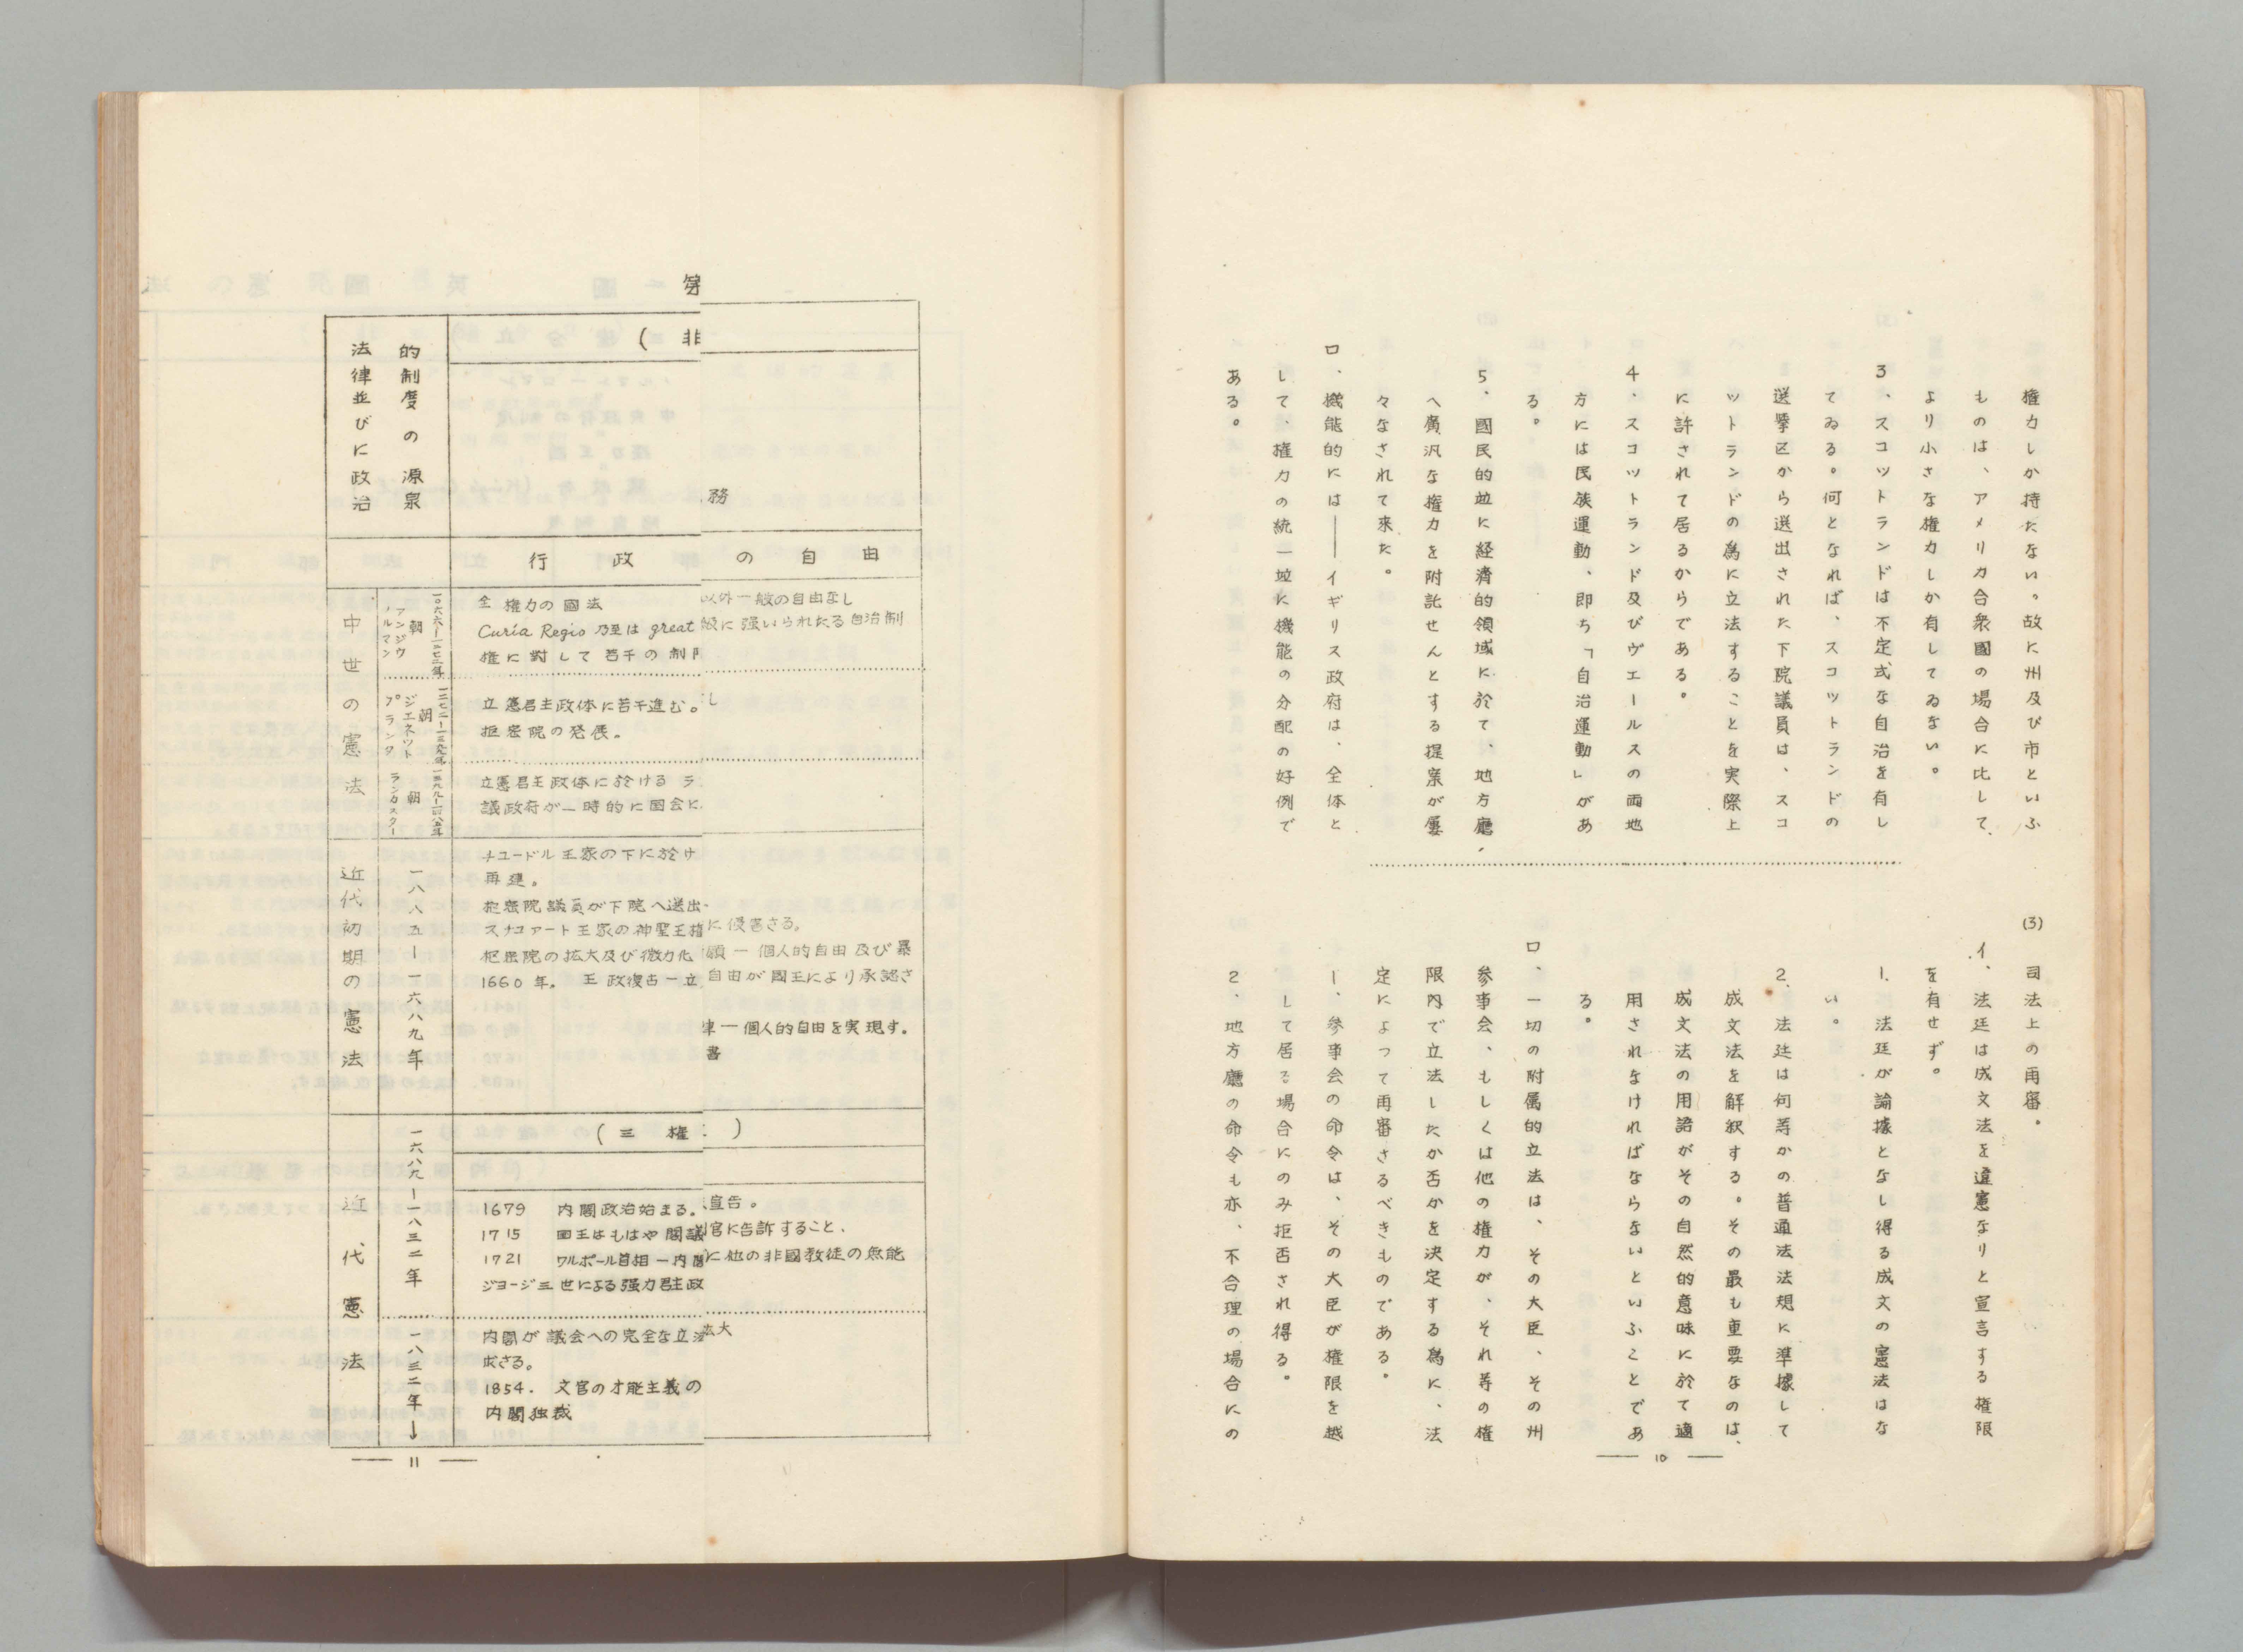 権力しか持たない。故に州及び市といふ
ものは、アメリカ合衆國の場合に比して、
より小さな権力しか有してゐない。
3、スコットランドは不定式な自治を有し
てゐる。何となれば、スコットランドの
選挙区から選出された下院議員は、スコ
ットランドの為に立法することを実際上
に許されて居るからである。
4、スコットランド及びヴエールスの両地
方には民族運動、即ち「自治運動」があ
る。
5、國民的竝に経済的領域に於て、地方廳
へ廣汎な権力を附託せんとする提案が屡
々なされて来た。
ロ、機能的には——イギリス政府は、全体と
して、権力の統一竝に機能の分配の好例で
ある。
(3) 司法上の再審。
イ、法廷は成文法を違憲なりと宣言する権限
を有せず。
1、法廷が論據となし得る成文の憲法はな
い。
2、法廷は何等かの普通法法規に準據して
成文法を解釈する。その最も重要なのは、
成文法の用語がその自然的意味に於て適
用されなければならないといふことであ
る。
ロ、一切の附属的立法は、その大臣、その州
参事会、もしくは他の権力が、それ等の権
限内で立法したか否かを決定する為に、法
定によつて再審さるべきものである。
1、参事会の命令は、その大臣が権限を越
して居る場合にのみ拒否され得る。
2、地方廳の命令も亦、不合理の場合にの
— 10 —
第
(非
法律並びに政治
的制度の源泉
務
行政
の自由
中世の憲法
一〇六六—一二七二年
ノルマン
アンジヴ
朝
全権力の國法
Curia Regis 乃至は great
権に對して若干の制
以外一般の自由なし
般に强いられたる自治制
一二七二—一三九九年
プランタ
ジエネット
朝
立憲君主政体に若干進む。
枢密院の発展。
し
一三九九—一四八五年
ランカスター
朝
立憲君主政体に於ける ラ
議政府が一時的に国会に
近代初期の憲法
一八八五—一六八九年
チユードル王家の下に於け
再建。
枢密院議員が下院へ送出
スチユアート王家の神聖王権
枢密院の拡大及び微力化
1660年。 王政復古一立
に侵害さる。
願 — 個人的自由及び暴
自由が國王により承認さ
律 — 個人的自由を実現す。
書
近代憲法
(三権
)
一六八九—一八三二年
1679 内閣政治始まる。
1715 国王はもはや閣議
1721 ワルポール首相 — 内閣
ジヨージ三世による强力君主政
宣告。
官に告訴すること、
に他の非國教徒の無能
一八三二年→
内閣が議会への完全な立法
求さる。
1854. 文官の才能主義の
内閣独裁
拡大
— 11 —